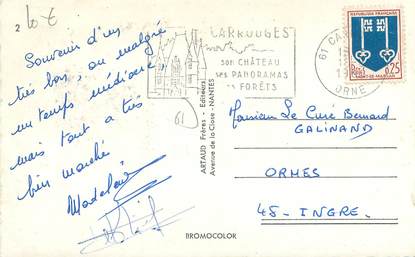 2 10 €
Souvenir d'un
très bon, ou malgré
un temps médiocre,
mais tout a très
bien marché
Madeleine
CARROUGES
SON CHÂTEAU
SES PANORAMAS
SES FORÊTS
61
61 CA
ORNE
REPUBLIQUE FRANÇAISE
POSTES 0,25
MONT-DE-MARSAN
ARTAUD Frères - Editeurs
Avenue de la Close - NANTES
Monsieur Le Curé Bernard
GALINAND
ORMES
45 - INGRE.
BROMOCOLOR